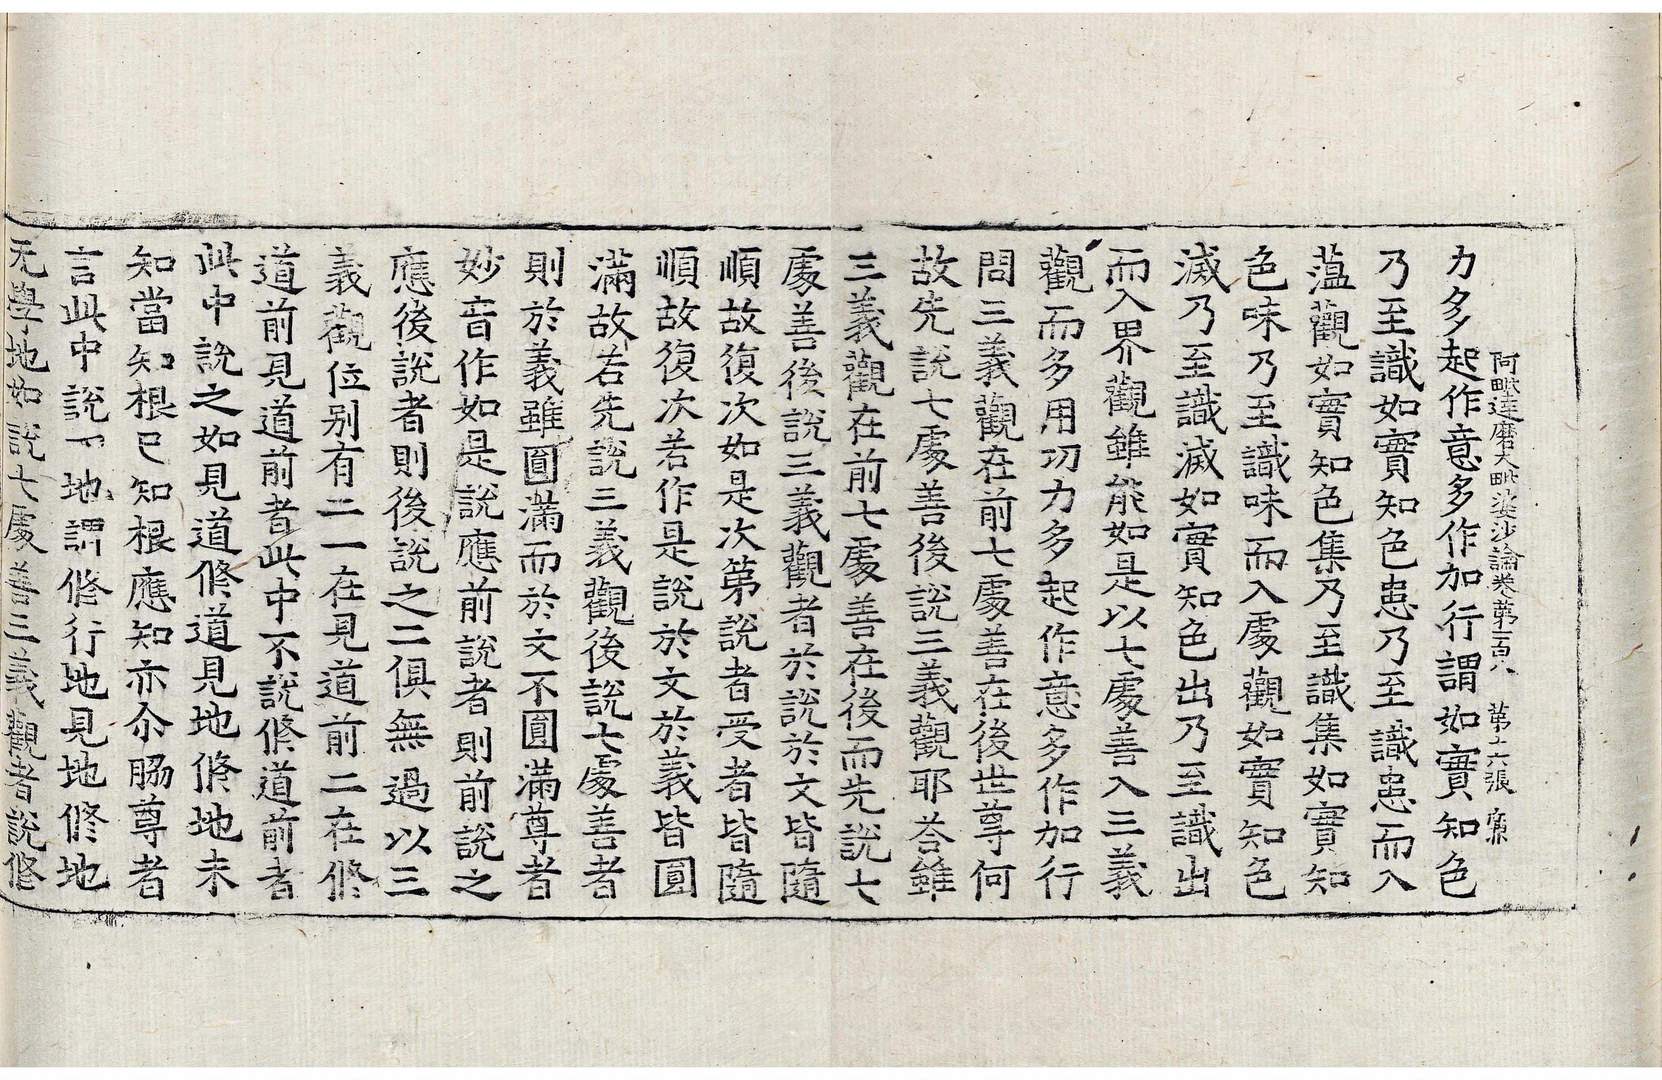 阿毗達磨大毗婆沙論卷第一百八　第十六張　廉
力多起作意多作加行謂如實知色
乃至識如實知色患乃至識患而入
蕰觀如實知色集乃至識集如實知
色味乃至識味而入處觀如實知色
滅乃至識滅如實知色出乃至識出
而入界觀雖能如是以七處善入三義
觀而多用功力多起作意多作加行
問三義觀在前七處善在後世尊何
故先說七處善後說三義觀耶荅雖
三義觀在前七處善在後而先說七
處善後說三義觀者於說於文皆隨
順故復次如是次第說者受者皆隨
順故復次若作是說於文於義皆圓
滿故若先說三義觀後說七處善者
則於義雖圓滿而於文不圓滿尊者
妙音作如是說應前說者則前說之
應後說者則後說之二俱無過以三
義觀位別有二一在見道前二在修
道前見道前者此中不說修道前者
此中說之如見道修道見地修地未
知當知根已知根應知亦尒脇尊者
言此中說一地謂修行地見地修地
无學地如說七處善三義觀者說修